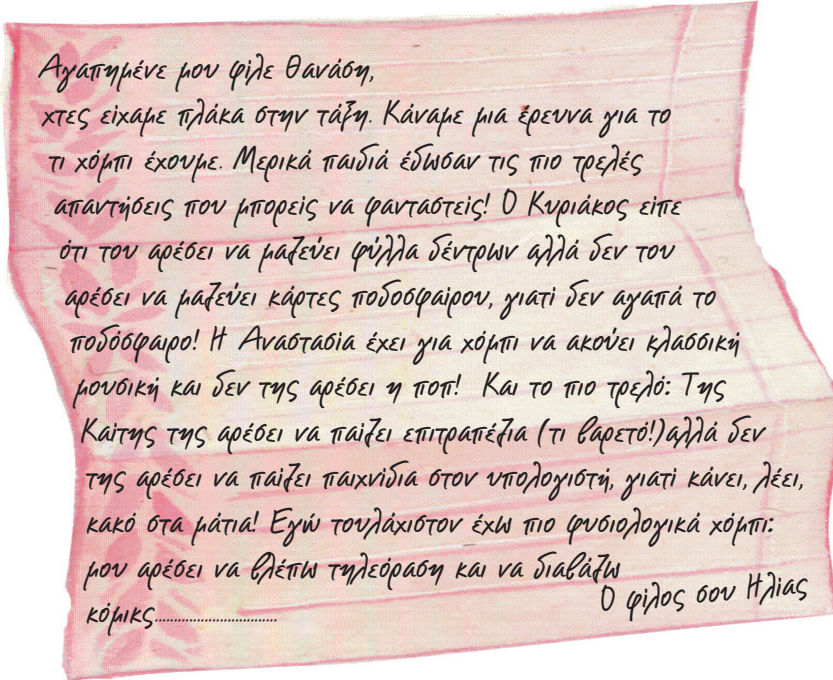 Αγαπημένε μου φίλε Θανάση,
χτες είχαμε πλάκα στην τάξη. Κάναμε μια έρευνα για το
τι χόμπι έχουμε. Μερικά παιδιά έδωσαν τις πιο τρελές
απαντήσεις που μπορείς να φανταστείς! Ο Κυριάκος είπε
ότι του αρέσει να μαζεύει φύλλα δέντρων αλλά δεν του
αρέσει να μαζεύει κάρτες ποδοσφαίρου, γιατί δεν αγαπά το
ποδόσφαιρο! Η Αναστασία έχει για χόμπι να ακούει κλασσική
μουσική και δεν της αρέσει η ποπ! Και το πιο τρελό: Της
Καίτης της αρέσει να παίζει επιτραπέζια (τι βαρετό!)αλλά δεν
της αρέσει να παίζει παιχνίδια στον υπολογιστή, γιατί κάνει, λέει,
κακό στα μάτια! Εγώ τουλάχιστον έχω πιο φυσιολογικά χόμπι:
μου αρέσει να βλέπω τηλεόραση και να διαβάζω
κόμικς.................................
Ο φίλος σου Ηλίας